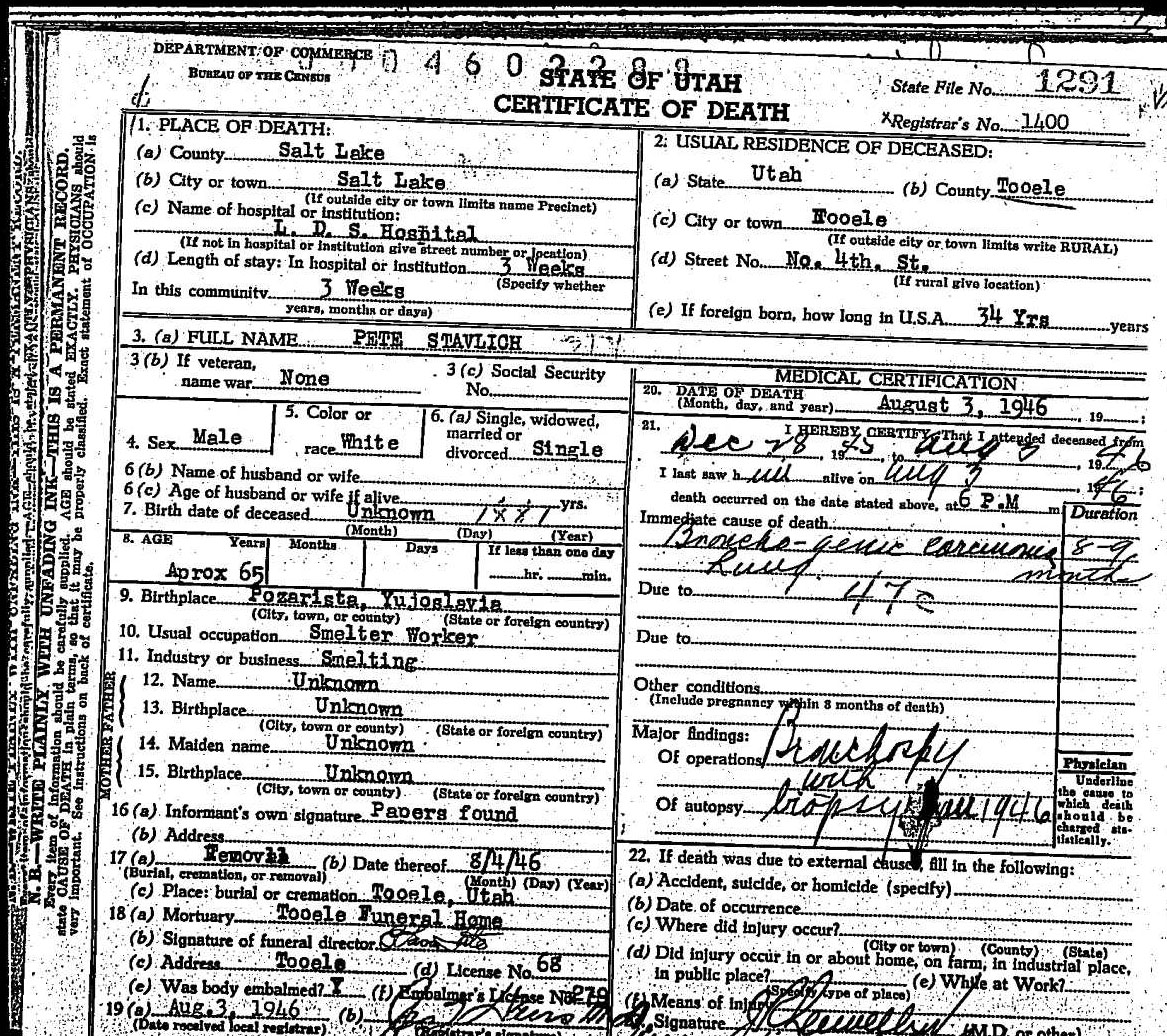 DEPARTMENT OF COMMERCE
BUREAU OF THE CENSUS
0 4 6 0
STATE OF UTAH
CERTIFICATE OF DEATH
State File No. 1291
xRegistrar's No. 1400
N. B.—WRITE PLAINLY WITH UNFADING INK—THIS IS A PERMANENT RECORD.
Every item of information should be carefully supplied. AGE should be stated EXACTLY. PHYSICIANS should
state CAUSE OF DEATH in plain terms, so that it may be properly classified. Exact statement of OCCUPATION is
very important. See instructions on back of certificate.
1. PLACE OF DEATH:
(a) County Salt Lake
(b) City or town Salt Lake
(If outside city or town limits name Precinct)
(c) Name of hospital or institution:
L. D. S. Hospital
(If not in hospital or institution give street number or location)
(d) Length of stay: In hospital or institution 3 Weeks
(Specify whether
In this community 3 Weeks
years, months or days)
2. USUAL RESIDENCE OF DECEASED:
(a) State Utah (b) County Tooele
(c) City or town Tooele
(If outside city or town limits write RURAL)
(d) Street No. No. 4th. St.
(If rural give location)
(e) If foreign born, how long in U.S.A. 34 Yrs years
3. (a) FULL NAME PETE STAVLICH
3 (b) If veteran,
name war None
3 (c) Social Security
No.
4. Sex Male
5. Color or
race White
6. (a) Single, widowed,
married or
divorced Single
6 (b) Name of husband or wife
6 (c) Age of husband or wife if alive yrs.
7. Birth date of deceased Unknown 1881
(Month) (Day) (Year)
8. AGE Years Months Days If less than one day
Aprox 65 hr. min.
9. Birthplace Pozarista, Yujoslavia
(City, town, or county) (State or foreign country)
10. Usual occupation Smelter Worker
11. Industry or business Smelting
FATHER
12. Name Unknown
13. Birthplace Unknown
(City, town or county) (State or foreign country)
MOTHER
14. Maiden name Unknown
15. Birthplace Unknown
(City, town or county) (State or foreign country)
16 (a) Informant's own signature Papers found
(b) Address
17 (a) Removal (b) Date thereof 8/4/46
(Burial, cremation, or removal) (Month) (Day) (Year)
(c) Place: burial or cremation Tooele, Utah
18 (a) Mortuary Tooele Funeral Home
(b) Signature of funeral director
(c) Address Tooele (d) License No. 68
(e) Was body embalmed? Y (f) Embalmer's License No. 279
19 (a) Aug. 3, 1946 (b)
(Date received local registrar) (Registrar's signature)
MEDICAL CERTIFICATION
20. DATE OF DEATH
(Month, day, and year) August 3, 1946, 19 ;
21. I HEREBY CERTIFY, That I attended deceased from
Dec 28 1945, to Aug 3, 1946
I last saw him alive on Aug 3 1946;
death occurred on the date stated above, at 6 P.M m
Duration
Immediate cause of death
Broncho-genic carcinoma 8-9
Lung month
Due to 47c
Due to
Other conditions
(Include pregnancy within 3 months of death)
Major findings:
Of operations Bronchospy
with
Of autopsy biopsy 1946
Physician
Underline
the cause to
which death
should be
charged sta-
tistically.
22. If death was due to external causes, fill in the following:
(a) Accident, suicide, or homicide (specify)
(b) Date of occurrence
(c) Where did injury occur?
(City or town) (County) (State)
(d) Did injury occur in or about home, on farm, in industrial place,
in public place? (e) While at Work?
(Specify type of place)
(f) Means of Injury
Signature (M.D. or other)